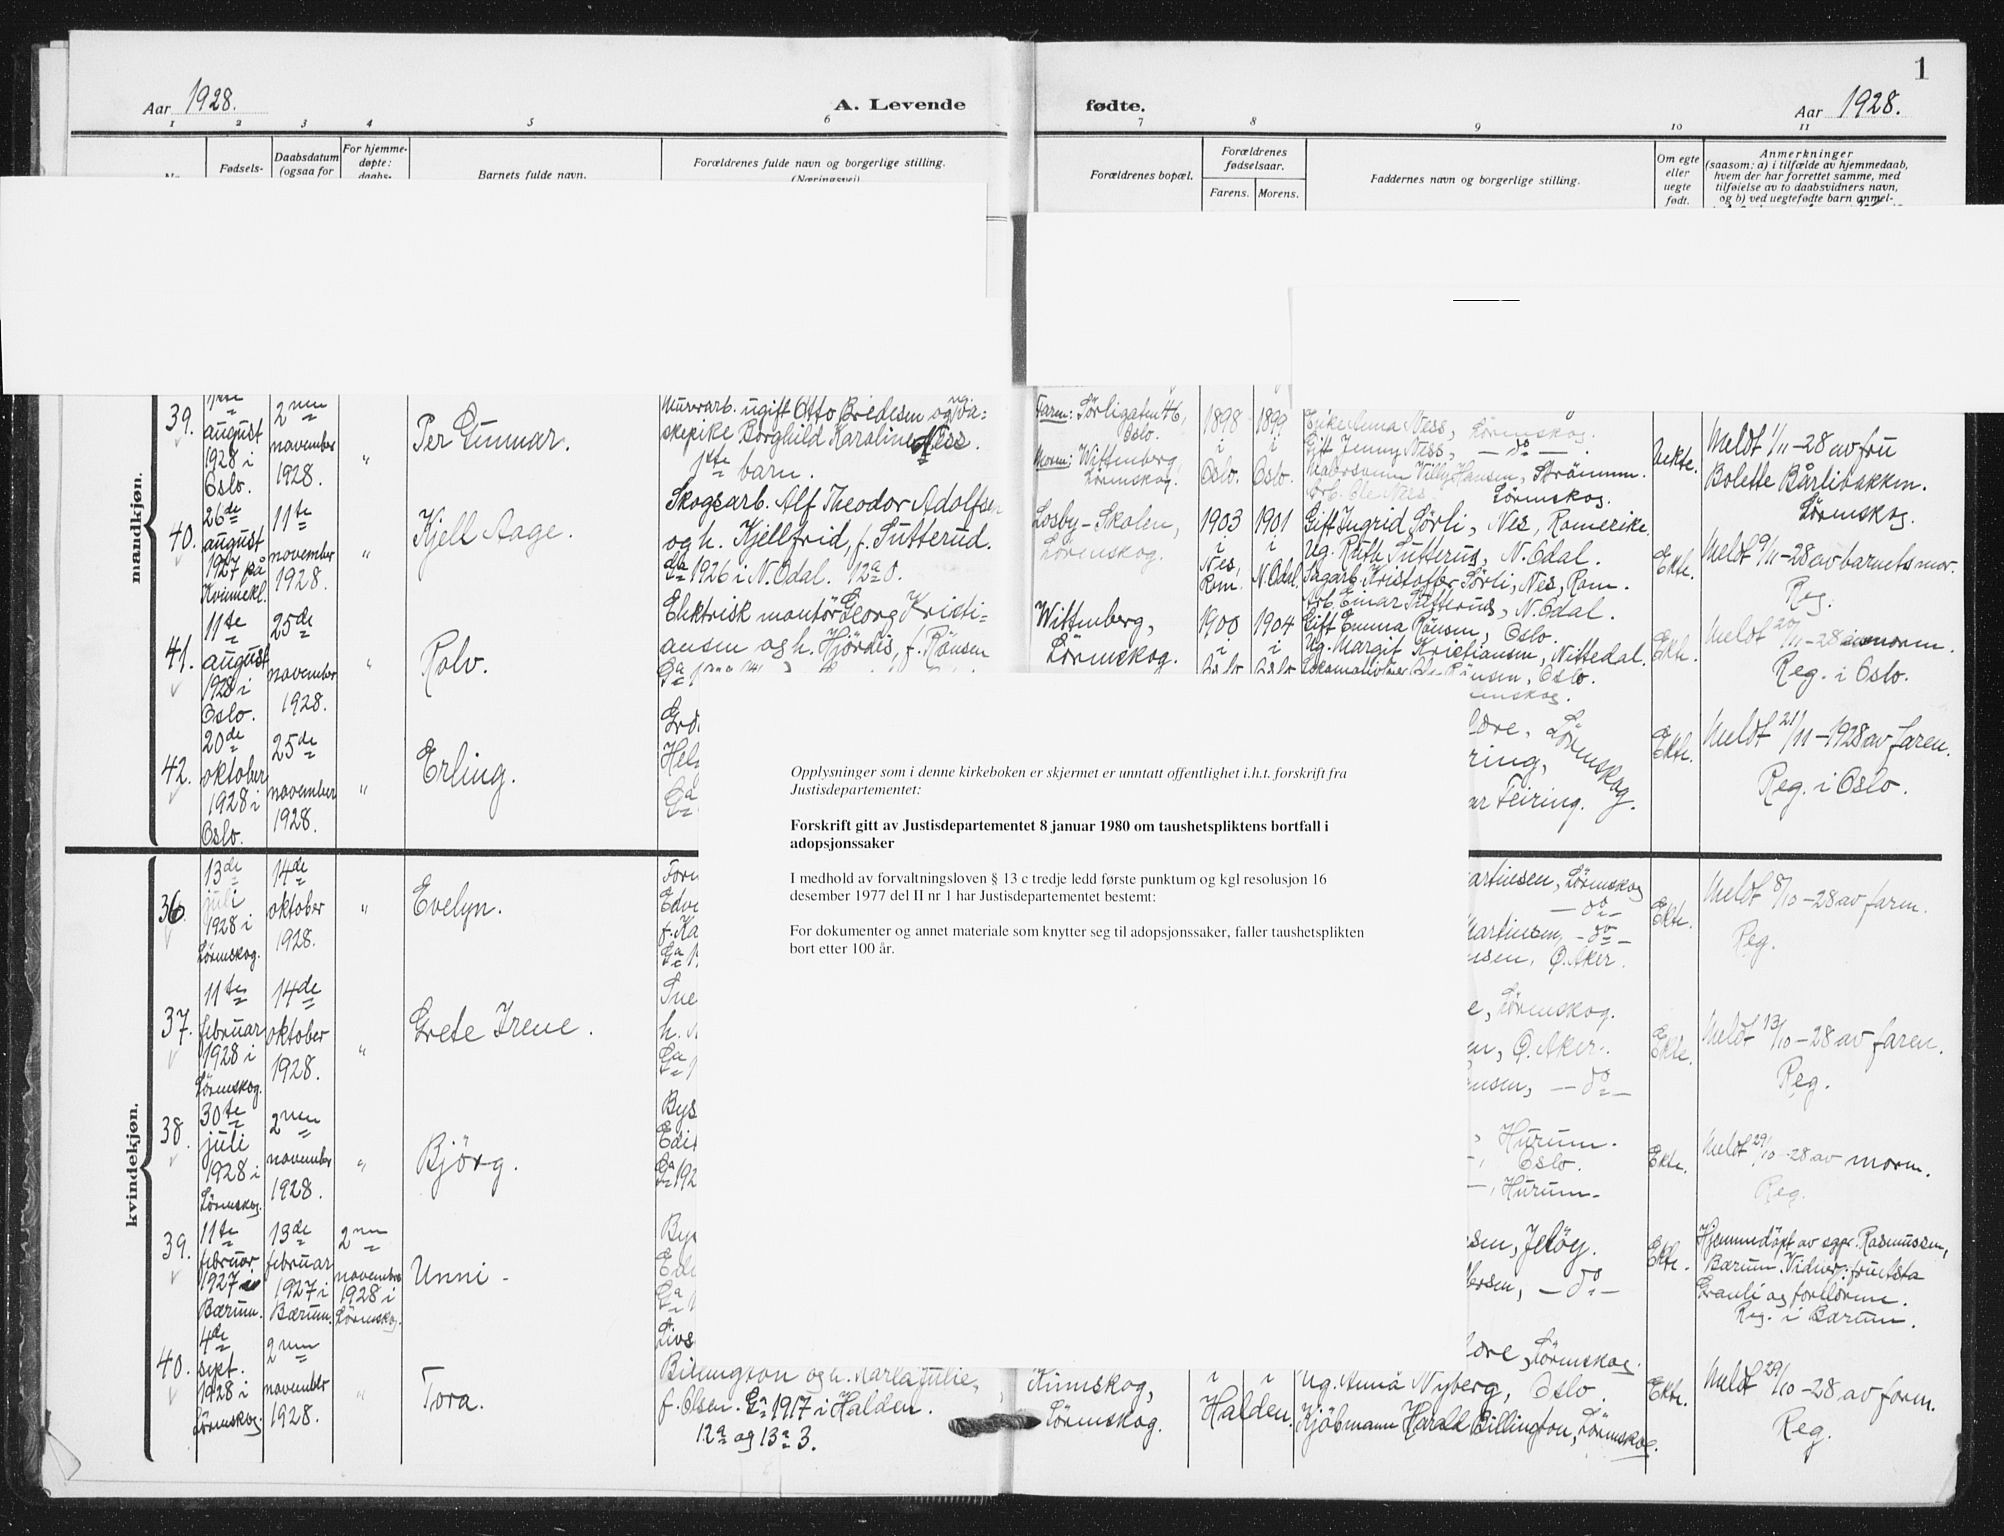 1
Aar 1928.
A. Levende
fødte.
Aar 1928.
1 2 3 4 5 6 7 8 9 10 11
Fødsels-
Daabsdatum
(ogsaa for
For hjemme-
døpte:
daabs-
Barnets fulde navn.
Forældrenes fulde navn og borgerlige stilling.
(Næringsvei)
Forældrenes bopæl.
Forældrenes
fødselsaar.
Farens. Morens.
Faddernes navn og borgerlige stilling.
Om egte
eller
uegte
født.
Anmerkninger
(saasom: a) i tilfælde av hjemmedaab,
hvem der har forrettet samme, med
tilføielse av to daabsvidners navn,
og b) ved uegtefødte barn anmel-
mandkjøn.
39.
august
1928 i
Oslo.
2nen
november
1928.
"
Per Gunnar.
Murerarb. ugift Otto Bredesen og Va-
skepike Borghild Karoline Næss.
1ste barn.
Faren: Sörligaten 46,
Oslo.
Moren: Wittenberg,
Lörenskog.
1898
i
Oslo.
1899
i
Oslo.
Enke Anna Næss, Lörenskog.
Gift Jenny Næss, — do —.
Murersvenn Willy Hansen, Strömmen.
Arb. Ole Næss, Lörenskog.
Uekte.
Meldt 1/11-28 av fru
Bolette Bårlibakken.
Lörenskog.
40.
26de
august
1927 på
Kvinnekl.
11te
november
1928.
"
Kjell Aage.
Skogsarb. Alf Theodor Adolfsen
og h. Kjellfrid, f. Sutterud.
Ga 1926 i N. Odal. 12a 0.
Losby-Skolen,
Lörenskog.
1903
i
Nes,
Rom.
1901
i
N. Odal.
Gift Ingrid Sörli, Nes, Romerike.
Ug. Ruth Sutterud, N. Odal.
Sagarb. Kristoffer Sörli, Nes, Rom.
Arb. Einar Sutterud, N. Odal.
Ekte.
Meldt 9/11-28 av barnets mor.
Reg.
41.
11te
august
1928 i
Oslo.
25de
november
1928.
"
Rolv.
Elektrisk montör Georg Kristi-
ansen og h. Hjördis, f. Rönsen
Wittenberg,
Lörenskog.
1900
i
Oslo
1904
i
Oslo
Gift Emma Rönsen, Oslo.
Ug. Margit Kristiansen, Nittedal.
Rönsen, Oslo.
Ekte.
Meldt 20/11-28 av moren.
Reg. i Oslo.
42.
20de
oktober
1928 i
Oslo.
25de
november
1928.
"
Erling.
Hel
Ga
dre, Lörenskog
ring,
ar Feiring.
Ekte.
Meldt 21/11-1928 av faren.
Reg. i Oslo.
Opplysninger som i denne kirkeboken er skjermet er unntatt offentlighet i.h.t. forskrift fra
Justisdepartementet:
Forskrift gitt av Justisdepartementet 8 januar 1980 om taushetspliktens bortfall i
adopsjonssaker
I medhold av forvaltningsloven § 13 c tredje ledd første punktum og kgl resolusjon 16
desember 1977 del II nr 1 har Justisdepartementet bestemt:
For dokumenter og annet materiale som knytter seg til adopsjonssaker, faller taushetsplikten
bort etter 100 år.
kvindekjøn.
36.
13de
juli
1928 i
Lörenskog.
14de
oktober
1928.
"
Evelyn.
Form
Edv
f. Ka
Ga 1
artinsen, Lörenskog
— do —
Martinsen, — do —
nsen, Ö. Aker.
Ekte.
Meldt 8/10-28 av faren.
Reg.
37.
11te
februar
1928 i
Lörenskog.
14de
oktober
1928.
"
Grete Irene.
Sne
h.
Ga
e, Lörenskog.
en, Ö. Aker.
ensen, — do —
Ekte.
Meldt 13/10-28 av faren.
Reg.
38.
30te
juli
1928 i
Lörenskog.
2nen
november
1928.
"
Björg.
Bys
Edit
Ga 192
, Hurum.
—, Oslo.
—, Hurum.
Ekte.
Meldt 29/10-28 av moren.
Reg.
39.
11te
februar
1927 i
Bærum.
13de
februar
1927 i
Bærum.
2nen
november
1928 i
Lörenskog.
Unni -
Byg
Ga
sen, Jelöy.
ersen, — do —
Ekte.
Hjemmedöpt av sgpr. Rasmussen,
Bærum. Vidner: fru Esta
Granli og foreldrene.
Reg. i Bærum.
40.
4de
sept.
1928 i
Lörenskog.
2nen
november
1928.
"
Tora.
Livs
Billington og h. Marta Julie,
f. Olsen. Ga 1917 i Halden.
12a og 13a 3.
Kinnskog,
Lörenskog.
i i
Halden.
dre, Lörenskog.
Ug. Anna Nyberg, Oslo.
Kjöbmann Harald Billington, Lörenskog.
Ekte.
Meldt 29/10-28 av faren.
Reg.